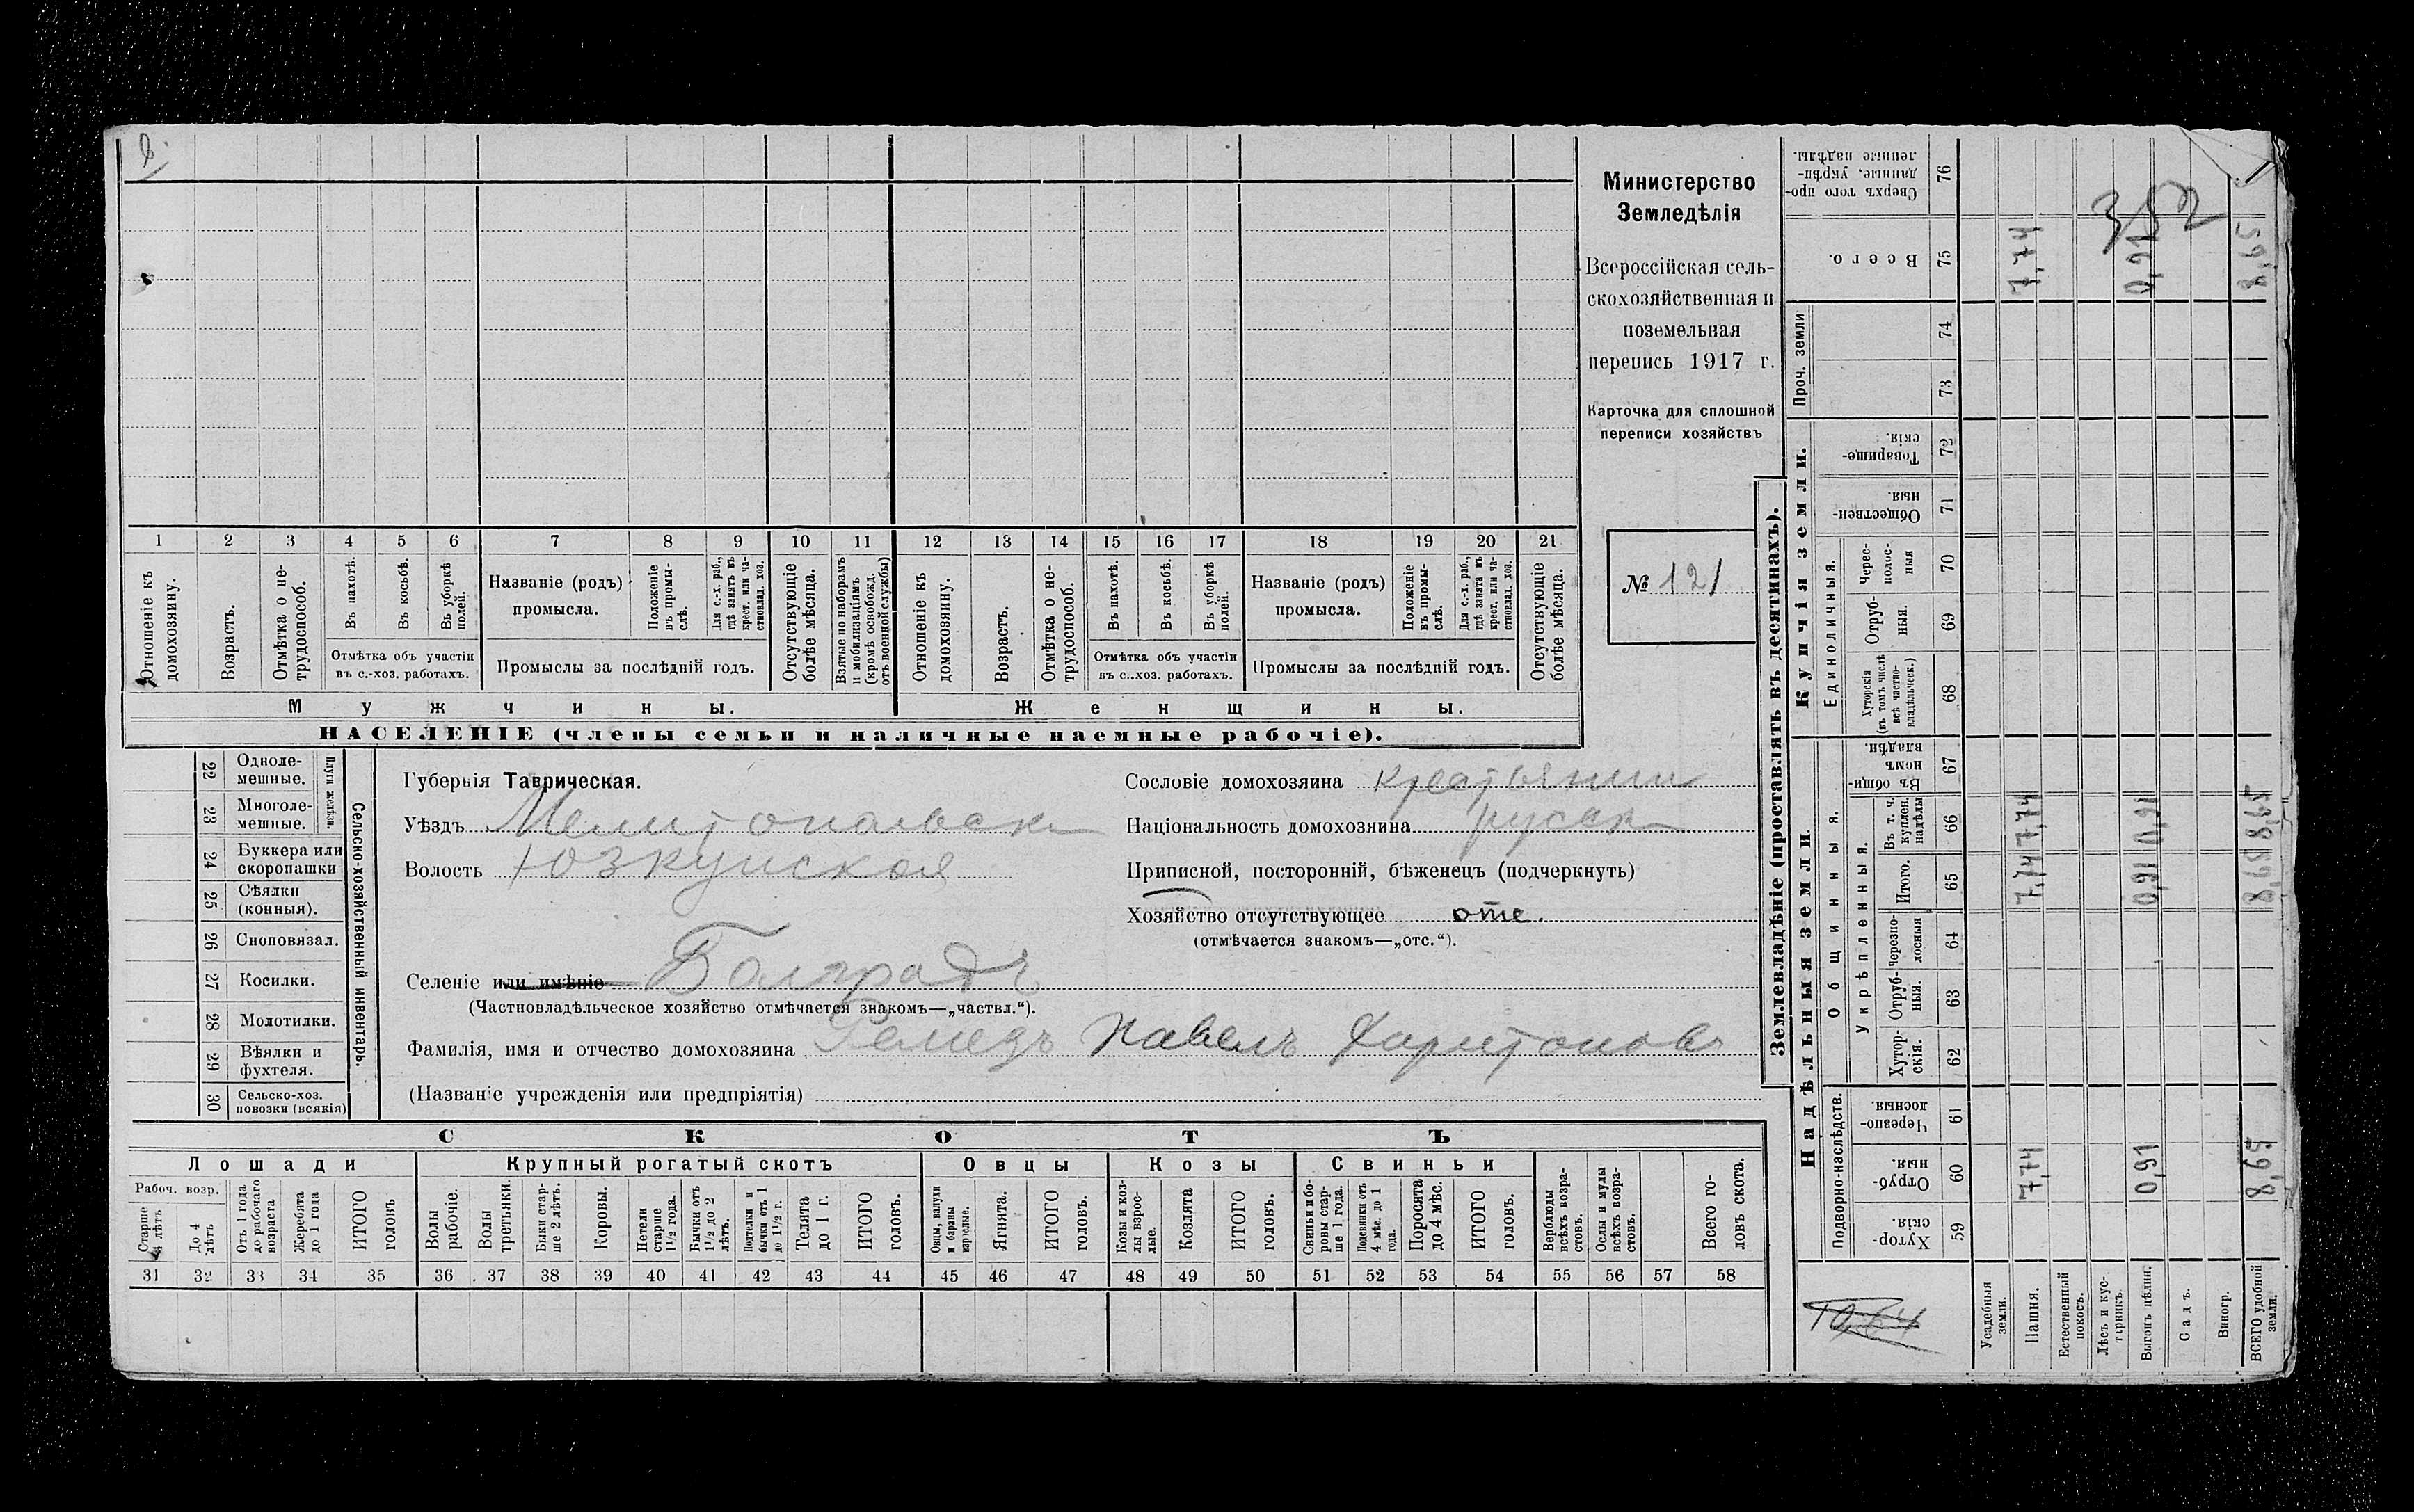 Министерство
Земледѣлія
Всероссійская сель-
скохозяйственная и
поземельная
перепись 1917 г.
Карточка для сплошной
переписи хозяйствъ
№ 121
352
1 2 3 4 5 6 7 8 9 10 11 12 13 14 15 16 17 18 19 20 21
Отношеніе къ домохозяину.
Возрастъ.
Отмѣтка о не-трудоспособ.
Въ пахотѣ.
Въ косьбѣ.
Въ уборкѣ полей.
Отмѣтка объ участіи
въ с.-хоз. работахъ.
Названіе (родъ)
промысла.
Положеніе въ промы-слѣ.
Для с.-х. раб., гдѣ занятъ въ крест. или ча-стновлад. хоз.
Промыслы за послѣдній годъ.
Отсутствующіе болѣе мѣсяца.
Взятые по наборамъ и мобилизаціямъ (кромѣ освобожд. отъ военной службы)
Отношеніе къ домохозяину.
Возрастъ.
Отмѣтка о не-трудоспособ.
Въ пахотѣ.
Въ косьбѣ.
Въ уборкѣ полей.
Отмѣтка объ участіи
въ с..хоз. работахъ.
Названіе (родъ)
промысла.
Положеніе въ промы-слѣ.
Для с.-х. раб., гдѣ занята въ крест. или ча-стновлад. хоз.
Промыслы за послѣдній годъ.
Отсутствующіе болѣе мѣсяца.
Мужчины.
Женщины.
НАСЕЛЕНІЕ (члены семьи и наличные наемные рабочіе).
Сельско-хозяйственный инвентарь.
Плуги желѣзн.
22 Одноле-мешные.
23 Многоле-мешные.
24 Буккера или скоропашки
25 Сѣялки (конныя).
26 Сноповязал.
27 Косилки.
28 Молотилки.
29 Вѣялки и фухтеля.
30 Сельско-хоз. повозки (всякія)
Губернія Таврическая.
Уѣздъ Мелитопольск
Волость Юзкуйская
Селеніе или имѣніе Болградъ
(Частновладѣльческое хозяйство отмѣчается знакомъ—„частвл.“).
Фамилія, имя и отчество домохозяина Ремезъ Павелъ Харитоновъ
(Названіе учрежденія или предпріятія)
Сословіе домохозяина крестьянин
Національность домохозяина русск
Приписной, посторонній, бѣженецъ (подчеркнуть)
Хозяйство отсутствующее отс.
(отмѣчается знакомъ—„отс.“).
СКОТЪ
Лошади
Рабоч. возр.
Старше 4 лѣтъ
До 4 лѣтъ
Отъ 1 года до рабочаго возраста
Жеребята до 1 года
ИТОГО головъ
Крупный рогатый скотъ
Волы рабочіе.
Волы третьяки.
Быки стар-ше 2 лѣтъ.
Коровы.
Нетели старше 1½ года.
Бычки отъ 1½ до 2 лѣтъ.
Подтелки и бычки отъ 1 до 1½ г.
Телята до 1 г.
ИТОГО головъ.
Овцы
Овцы, валухи и бараны взрослые.
Ягнята.
ИТОГО головъ.
Козы
Козы и коз-лы взрос-лые.
Козлята
ИТОГО головъ.
Свиньи
Свиньи и бо-ровы стар-ше 1 года.
Подсвинки отъ 4 мѣс. до 1 года.
Поросята до 4 мѣс.
ИТОГО головъ.
Верблюды всѣхъ возра-стовъ.
Ослы и мулы всѣхъ возра-стовъ.
Всего го-ловъ скота.
31 32 33 34 35 36 37 38 39 40 41 42 43 44 45 46 47 48 49 50 51 52 53 54 55 56 57 58
Землевладѣніе (проставлять въ десятинахъ).
Надѣльныя земли.
Подворно-наслѣдств.
Хутор-скія. 59
Отруб-ныя. 60
Черезпо-лосныя. 61
Общинныя.
Укрѣпленныя.
Хутор-скія. 62
Отруб-ныя. 63
Черезпо-лосныя 64
Итого. 65
Въ т. ч. куплен. надѣлы 66
Въ общи-номъ владѣн. 67
Купчія земли.
Единоличныя.
Хуторскія (въ томъ числѣ всѣ частно-владѣльческ.) 68
Отруб-ныя. 69
Черес-полос-ныя 70
Обществен-ныя. 71
Товарище-скія. 72
Проч. земли
73
74
Всего. 75
Сверхъ того про-данные, укрѣп-ленные надѣлы. 76
Усадебныя земли.
Пашня. 7,74 7,74 7,74 7,74
Естественный покосъ.
Лѣсъ и кус-тарникъ.
Выгонъ цѣлин. 0,91 0,91 0,91 0,91
Садъ.
Виногр.
ВСЕГО удобной земли. 8,65 8,65 8,65 8,65